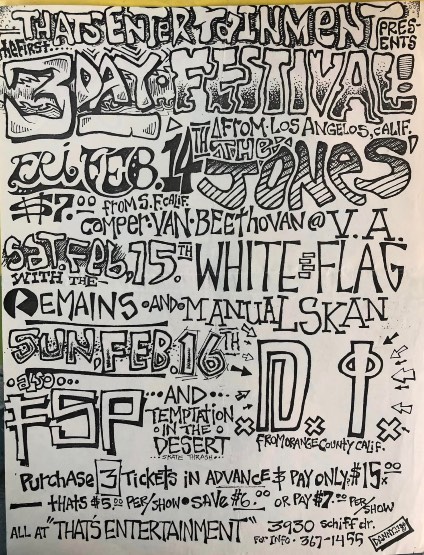 THATS ENTERTAINMENT PRESENTS
the First...
3 DAY FESTIVAL!
FROM LOS ANGELOS, CALIF.
FRI FEB. 14TH THE JONES'
$7.00 from S.F. Calif.
Camper Van Beethovan @ V.A.
SAT. Feb, 15.TH WHITE FLAG
WITH THE
REMAINS AND MANUAL SKAN
SUN, FEB. 16TH
also...
FSP ...AND... D I
TEMPTATION
IN THE
DESERT
SKATE THRASH..
FROM ORANGE COUNTY CALIF.
Purchase 3 Tickets in Advance & Pay Only $15.00
— thats $5.00 Per/Show • Save $6.00 or Pay $7.00 Per/Show
ALL AT "THATS ENTERTAINMENT" 3930 Schiff dr.
For Info • 367-1455